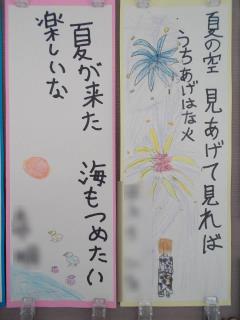 夏の空 見あげて見れば
うちあげはな火
夏が来た 海もつめたい
楽しいな